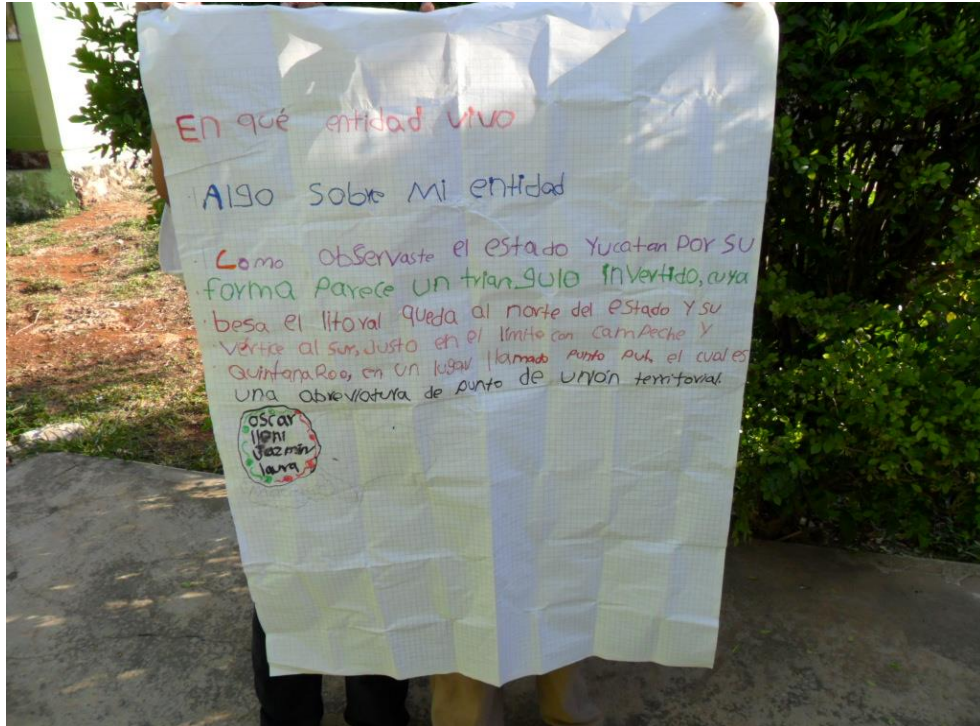 En qué entidad vivo
Algo sobre Mi entidad
Como observaste el estado Yucatan por su
forma parece un triangulo invertido, cuya
besa el litoral queda al norte del estado y su
vértice al sur, Justo en el límite con campeche y
Quintana Roo, en un lugar llamado punto put, el cual es
una abreviatura de punto de unión territorial.
oscar
lleni
Jazmin
laura